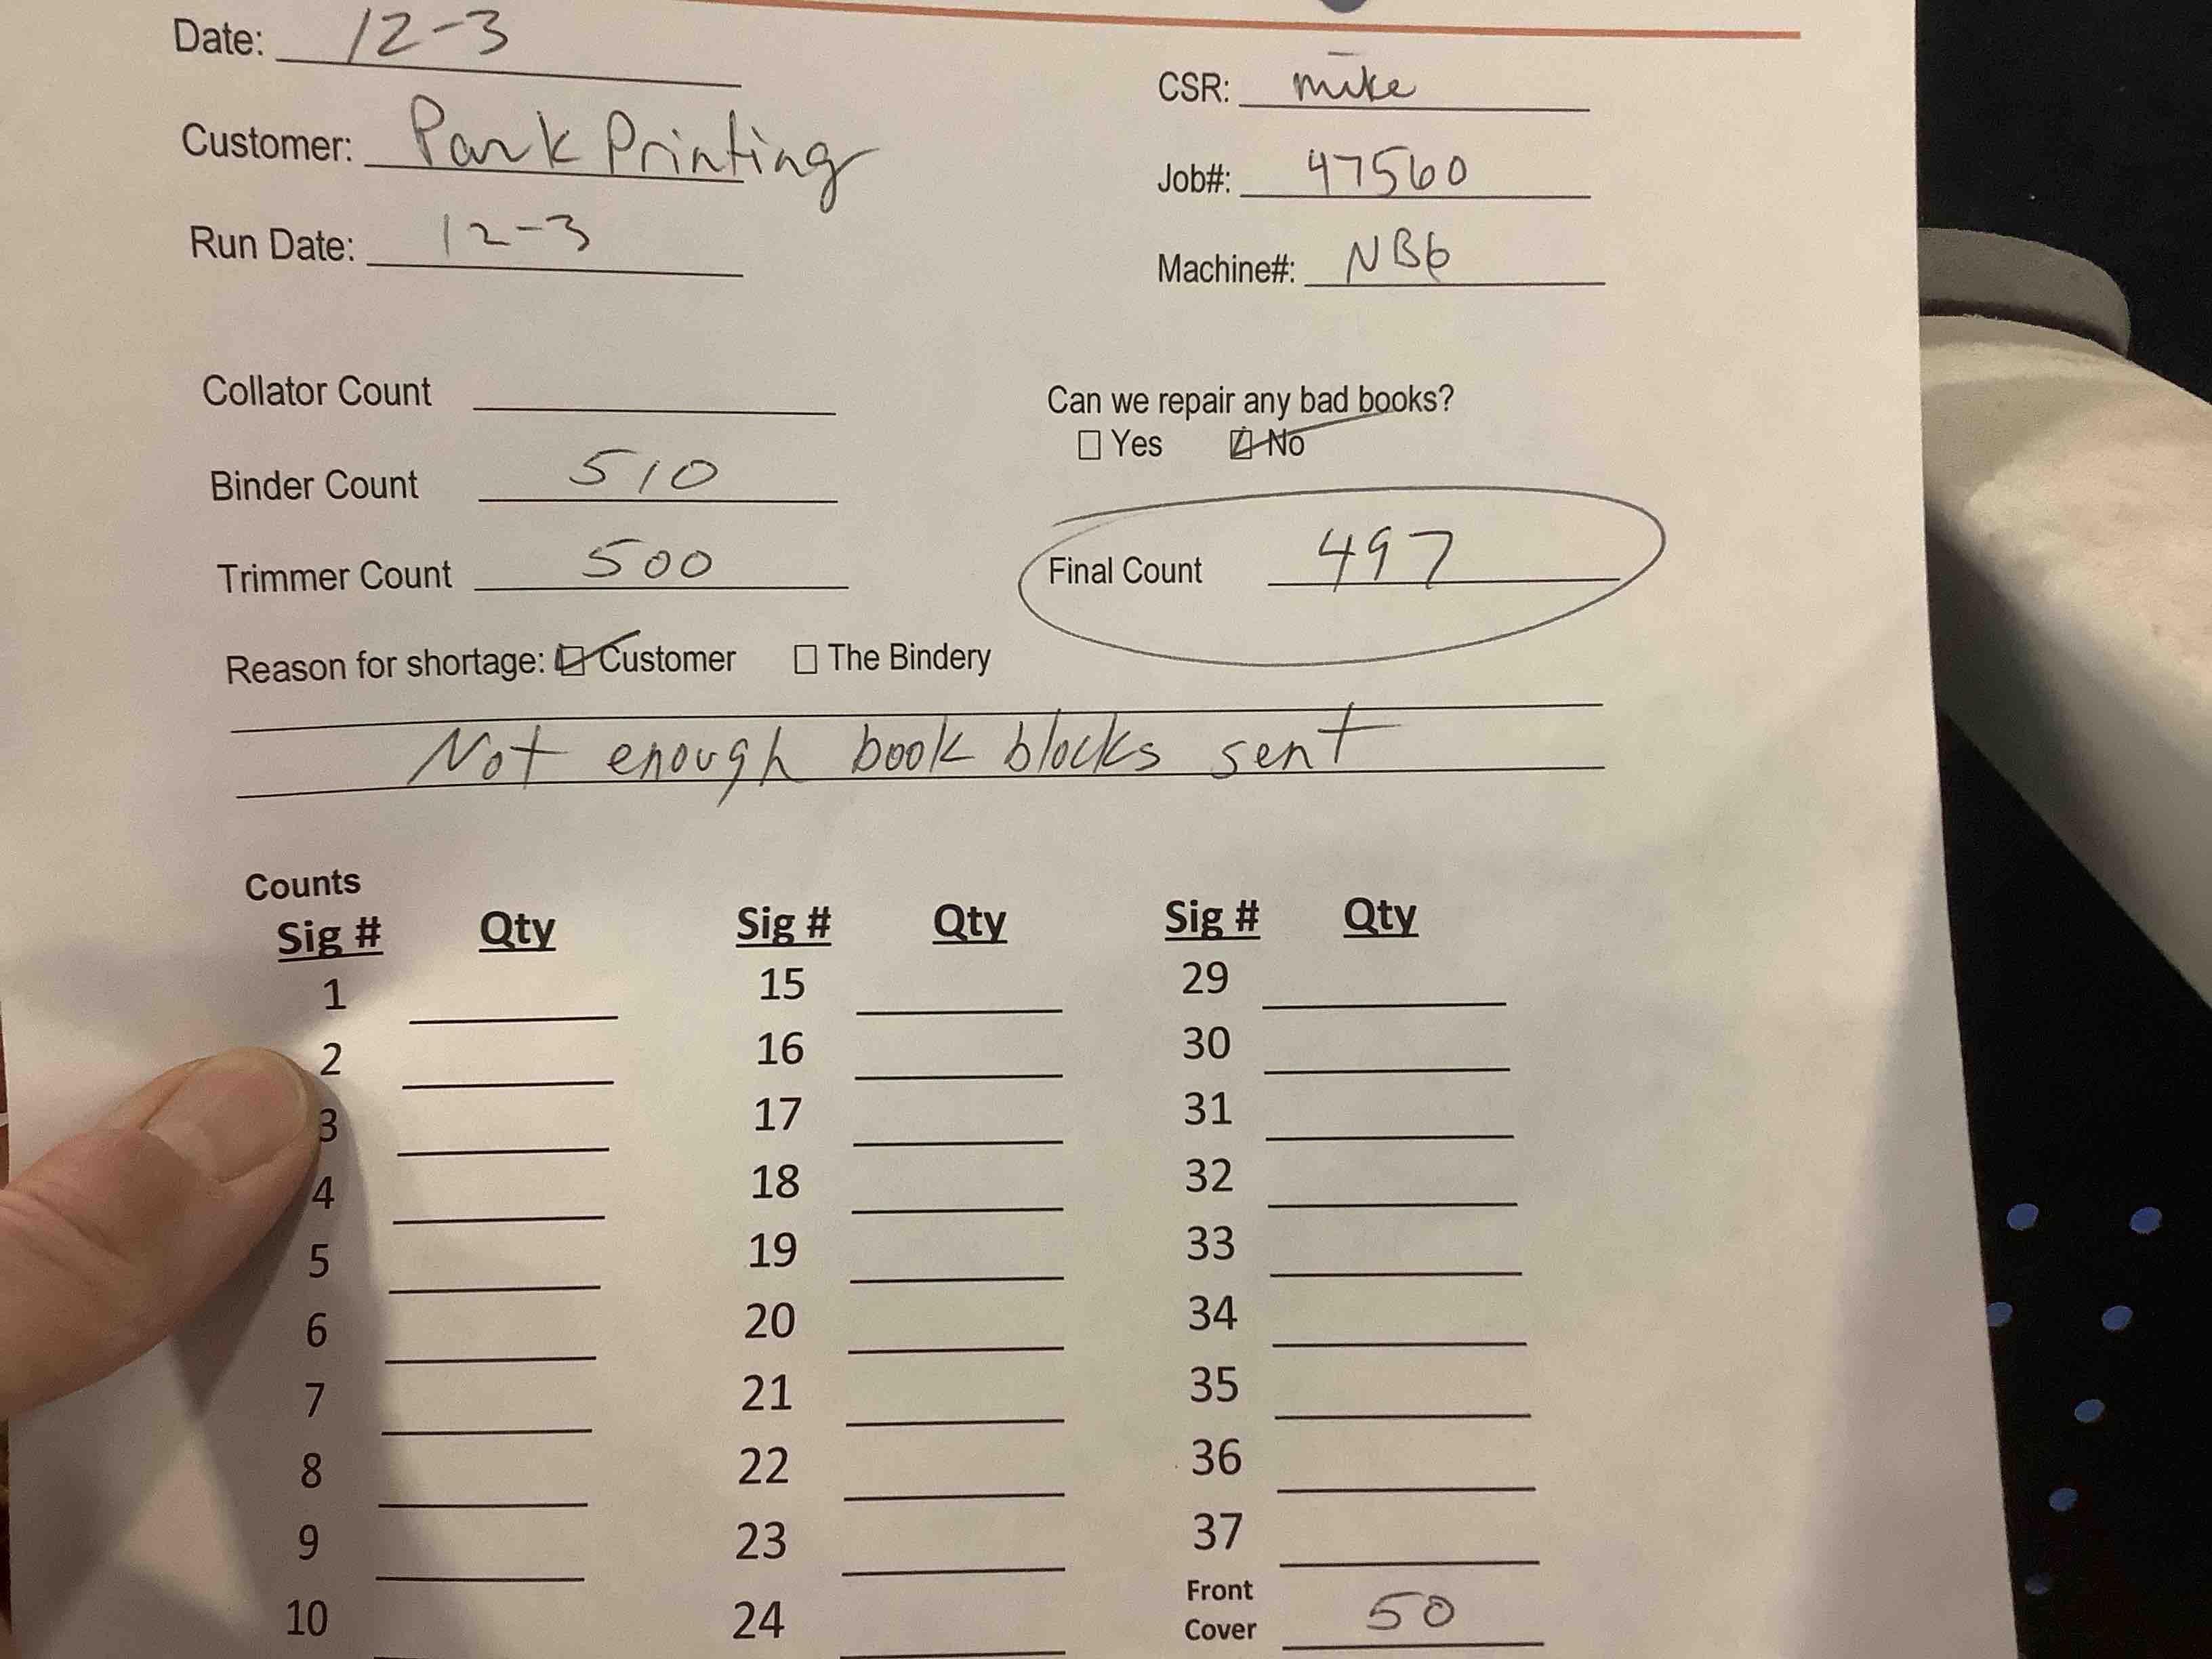 Date: 12-3
CSR: mike
Customer: Park Printing
Job#: 47560
Run Date: 12-3
Machine#: NB6
Collator Count
Can we repair any bad books?
Yes No
Binder Count 510
Trimmer Count 500
Final Count 497
Reason for shortage: Customer The Bindery
Not enough book blocks sent
Counts
Sig # Qty Sig # Qty Sig # Qty
1 15 29
2 16 30
3 17 31
4 18 32
5 19 33
6 20 34
7 21 35
8 22 36
9 23 37
10 24 Front Cover 50